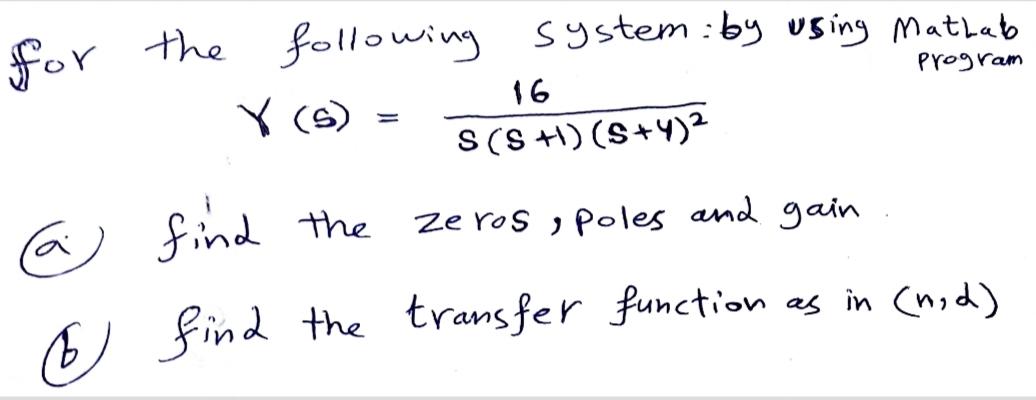 for the following system : by using MatLab
program
Y (S) = 16
S (S +1) (S+4)²
a) find the zeros , poles and gain
b) find the transfer function as in (n,d)